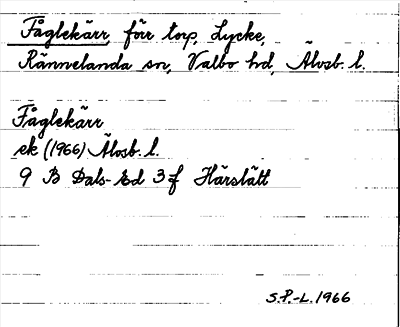 Fåglekärr, förr torp, Lycke,
Rännelanda sn, Valbo hd, Älvsb. l.
Fåglekärr
ek (1966) Älvsb. l.
9 B Dals-Ed 3 f Härslätt
S.P.-L. 1966